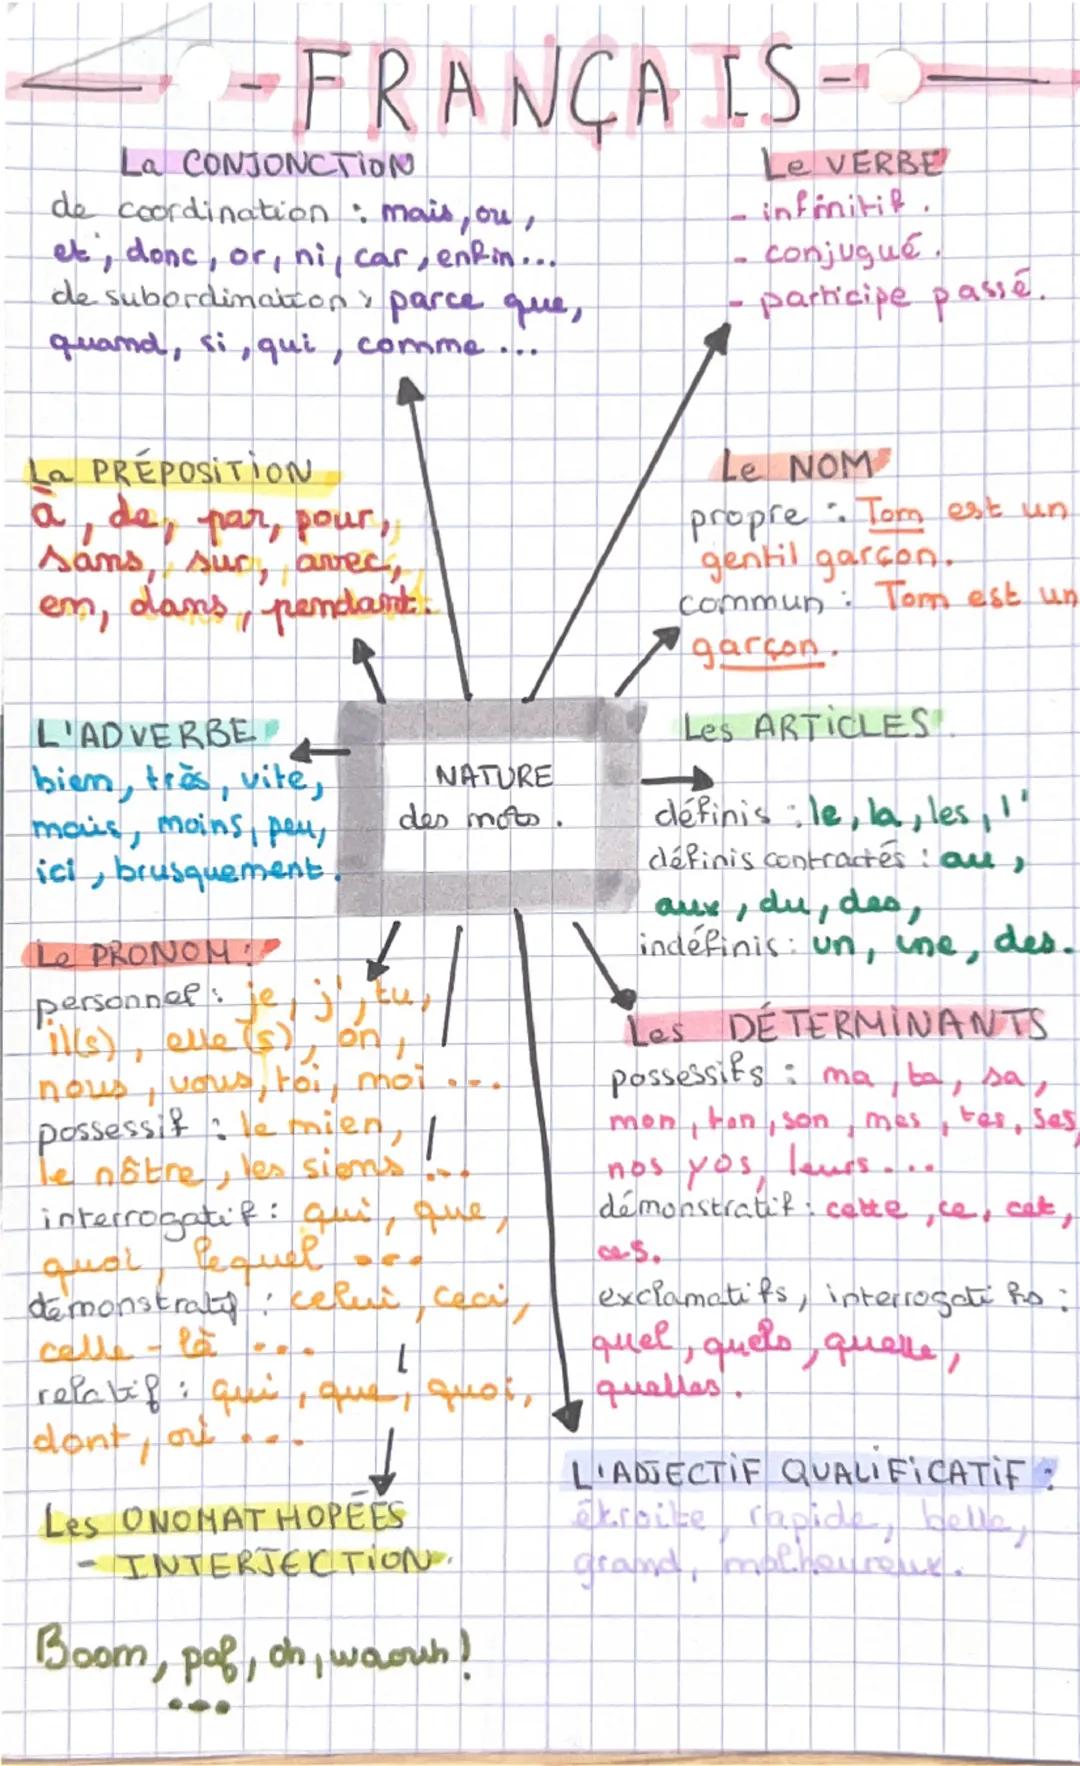 -FRANÇAIS-
La CONJONCTION
de coordination : mais, ou,
et, donc, or, ni, car, enfin...
de subordination : parce que,
quand, si, qui, comme ...
Le VERBE
- infinitif.
- conjugué.
- participe passé.
La PRÉPOSITION
à, de, par, pour,
sans, sur, avec,
en, dans, pendant.
Le NOM
propre : Tom est un
gentil garçon.
commun : Tom est un
garçon.
L'ADVERBE
bien, très, vite,
mais, moins, peu,
ici, brusquement.
NATURE
des mots.
Les ARTICLES
définis : le, la, les, l'
définis contractés : au,
aux, du, des,
indéfinis : un, une, des.
Le PRONOM :
personnel : je, j', tu,
il(s), elle(s), on,
nous, vous, toi, moi ...
possessif : le mien,
le nôtre, les siens ...
interrogatif : qui, que,
quoi, lequel ...
démonstratif : celui, ceci,
celle-là ...
relatif : qui, que, quoi,
dont, où ...
Les DÉTERMINANTS
possessifs : ma, ta, sa,
mon, ton, son, mes, tes, ses,
nos vos, leurs ...
démonstratif : cette, ce, cet,
ces.
exclamatifs, interrogatifs :
quel, quels, quelle,
quelles.
L'ADJECTIF QUALIFICATIF :
étroite, rapide, belle,
grand, malheureux.
Les ONOMATHOPÉES
- INTERJECTION.
Boom, paf, oh, waouh !
...